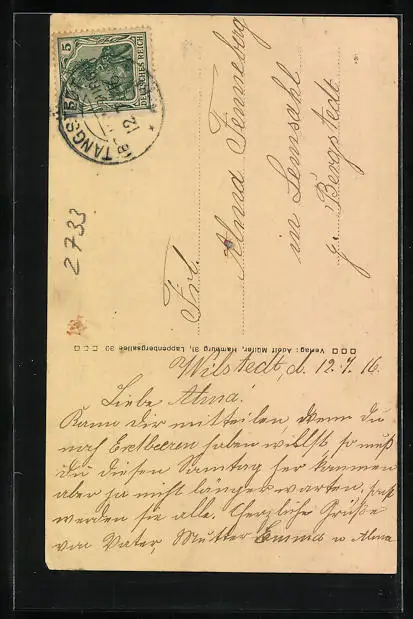 5
5
DEUTSCHES REICH
TANGST
12.7
2733
Frl.
Alma Tenneberg
in Lemsahl
p. Bergstedt
Verlag: Adolf Müller, Hamburg 31, Lappenbergsallee 30
Wilstedt, d. 12.7.16.
Liebe Alma!
Kann dir mitteilen, wenn du
noch Erdbeeren haben willst so muß
du diesen Samtag her kommen
aber ja nicht länger warten, sonst
werden sie alle. Herzliche Grüße
von Vater, Mutter Emma u Alma